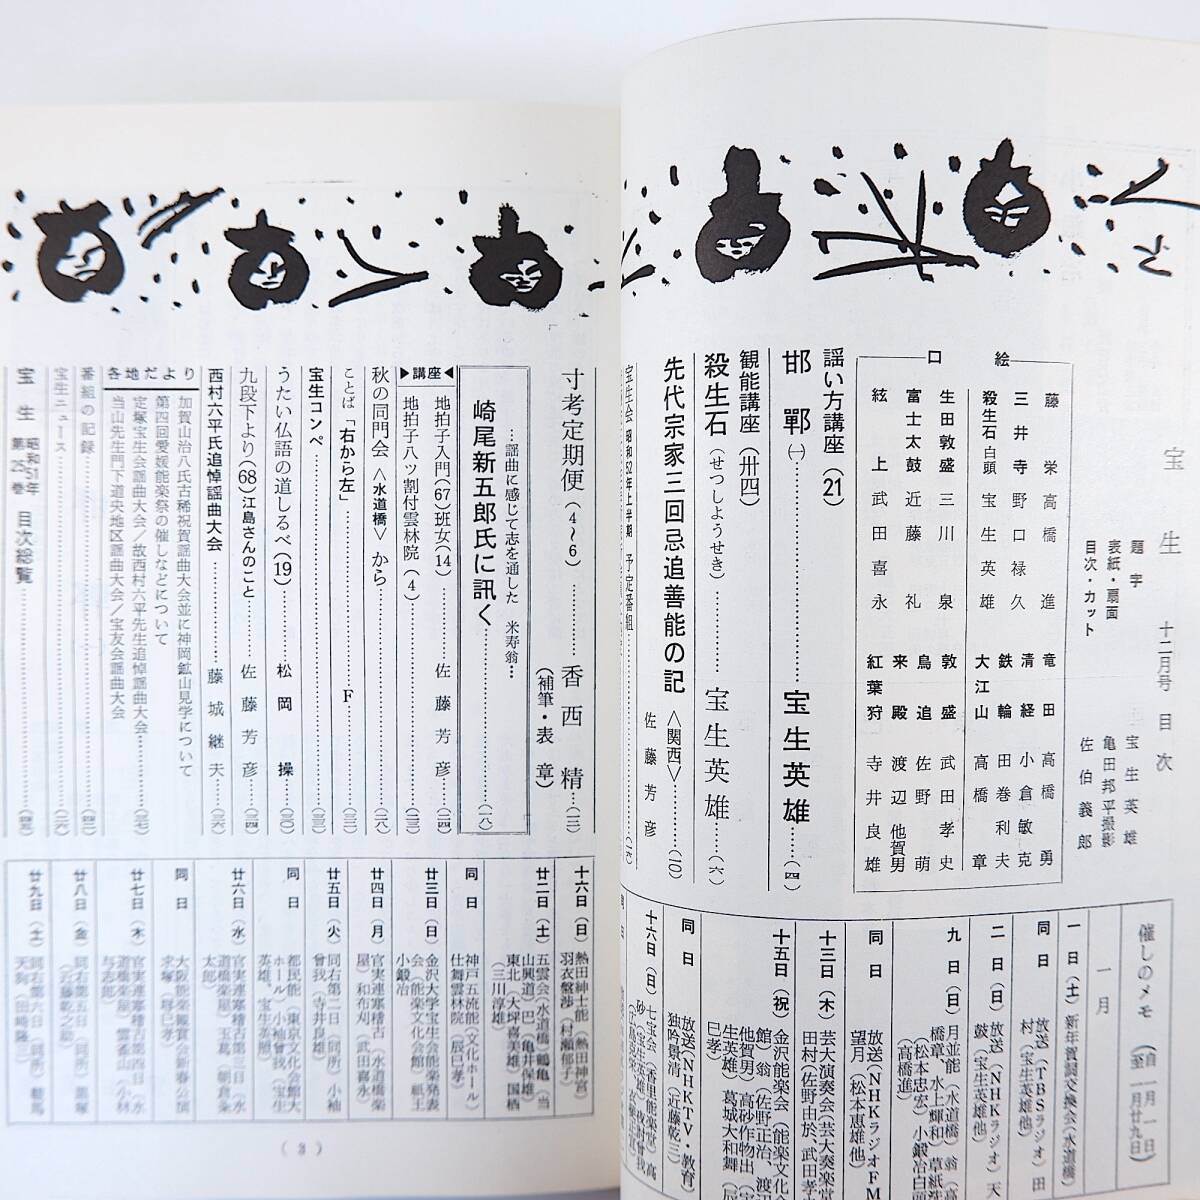 宝生 十二月号 目次
題字 宝生英雄
表紙・扇面 亀田邦平撮影
目次・カット 佐伯義郎
口絵
藤栄 高橋進
三井寺 野口禄久
殺生石白頭 宝生英雄
生田敦盛 三川泉
富士太鼓 近藤礼
絃上 武田喜永
竜田 高橋勇
清経 小倉敏克
鉄輪 田巻利夫
大江山 高橋章
敦盛 武田孝史
鳥追 佐野萌
来殿 渡辺他賀男
紅葉狩 寺井良雄
謡い方講座(21)
邯鄲㈠……宝生英雄……(四)
観能講座(卅四)
殺生石(せつしようせき)……宝生英雄……(六)
先代宗家三回忌追善能の記〈関西〉……佐藤芳彦(一〇)
宝生会昭和52年上半期予定番組……(一六)
寸考定期便(4〜6)……香西精……(一三)
(補筆・表章)
…謡曲に感じて志を通した 米寿翁…
崎尾新五郎氏に訊く……(一八)
▶講座◀
地拍子入門(67)班女(14)……佐藤芳彦……(二四)
地拍子八ッ割付雲林院(4)……(二三)
秋の同門会〈水道橋〉から……(二八)
ことば「右から左」……F……(三二)
宝生コンペ……(三三)
うたい仏語の道しるべ(19)……松岡操……(三〇)
九段下より(68)江島さんのこと……佐藤芳彦……(三四)
西村六平氏追悼謡曲大会……藤城継夫……(三六)
各地だより
加賀山治八氏古稀祝賀謡曲大会並に神岡鉱山見学について
第四回愛媛能楽祭の催しなどについて
定塚宝生会謡曲大会/故西村六平先生追悼謡曲大会……(三七)
当山先生門下道央地区謡曲大会/宝友会謡曲大会
番組の記録……(四二)
宝生ニュース……(二六)
宝生 昭和51年 第25巻 目次総覧……(四五)
催しのメモ(自一月一日 至一月廿九日)
一月
一日(土)新年賀詞交換会(水道橋)
同日 放送(TBSラジオ)田村(宝生英雄他)
二日(日)放送(NHKラジオ)天鼓(宝生英雄他)
九日(日)月並能(水道橋)翁(高橋章、水上輝和)草紙洗(松本忠宏)小鍛冶白頭(高橋進)
同日 放送(NHKラジオFM)望月(松本恵雄他)
十三日(木)芸大演奏会(芸大奏楽堂)
十五日(祝)金沢能楽会(能楽文化会館)翁(佐野正治、渡辺他賀男)高砂作物出(宝生英雄)葛城大和舞(辰巳孝)
同日 放送(NHKTV・教育)独吟景清(近藤乾三)
十六日(日)七宝会(香里能楽堂)
十六日(日)熱田紳士能(熱田神宮)羽衣盤渉(村瀬郁子)
廿二日(土)五雲会(水道橋)鶴亀(当山興道)巴(亀井保雄)東北(大坪喜美雄)国栖(三川淳雄)
同日 神戸五流能(文化ホール)仕舞雲林院(辰巳孝)
廿三日(日)金沢大学宝生会能楽発表会(能楽文化会館)紙王 小鍛冶
廿四日(月)官実連寒稽古(水道橋楽屋)和布刈(武田喜永)
廿五日(火)同右第二日(同所)小袖曽我(寺井良雄)
同日 都民能(東京文化会館大ホール)小袖曽我(宝生英雄、宝生英照)
廿六日(水)官実連寒稽古第三日(水道橋楽屋)玉葛(朝倉粂太郎)
同日 大阪能楽観賞会新春公演 求塚(辰巳孝)
廿七日(木)官実連寒稽古第四日(水道橋楽屋)雲雀山(小林与志郎)
廿八日(金)同右第五日(同所)墨塚(近藤乾之助)
廿九日(土)同右第六日(同所)鞍馬天狗(田崎隆三)
(3)